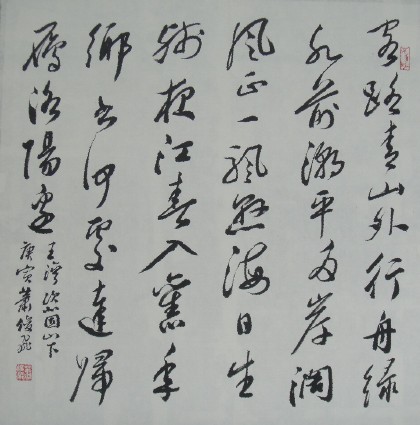 客路青山外行舟綠
水前潮平兩岸闊
風正一颿懸海日生
殘夜江春入舊年
鄉書何處達歸
雁洛陽邊
王灣次北固山下
庚寅蕭俊飛